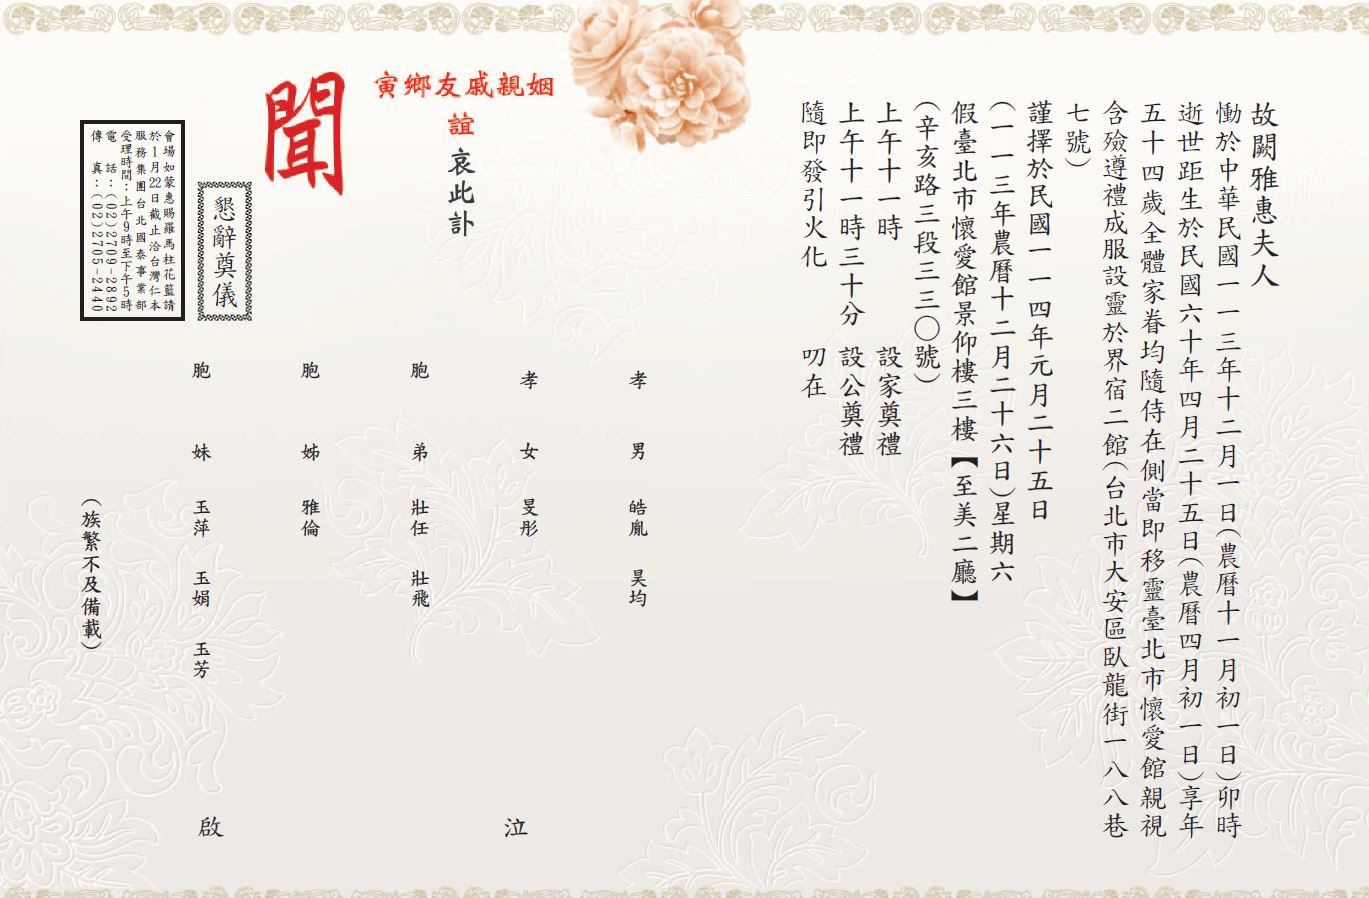 故闕雅惠夫人
慟於中華民國一一三年十二月一日(農曆十一月初一日)卯時
逝世距生於民國六十年四月二十五日(農曆四月初一日)享年
五十四歲全體家眷均隨侍在側當即移靈臺北市懷愛館親視
含殮遵禮成服設靈於界宿二館(台北市大安區臥龍街一八八巷
七號)
謹擇於民國一一四年元月二十五日
(一一三年農曆十二月二十六日)星期六
假臺北市懷愛館景仰樓三樓【至美二廳】
(辛亥路三段三三〇號)
上午十一時 設家奠禮
上午十一時三十分 設公奠禮
隨即發引火化 叨在
姻親戚友鄉寅
誼哀此訃
聞
孝男 皓胤 昊均
孝女 旻彤
泣
胞弟 壯任 壯飛
胞姊 雅倫
胞妹 玉萍 玉娟 玉芳
啟
(族繁不及備載)
懇辭奠儀
會場如蒙惠賜羅馬柱花籃請
於1月22日截止洽台灣仁本
服務集團台北國泰事業部
受理時間:上午9時至下午5時
電 話:(02)2709-2892
傳 真:(02)2705-2440